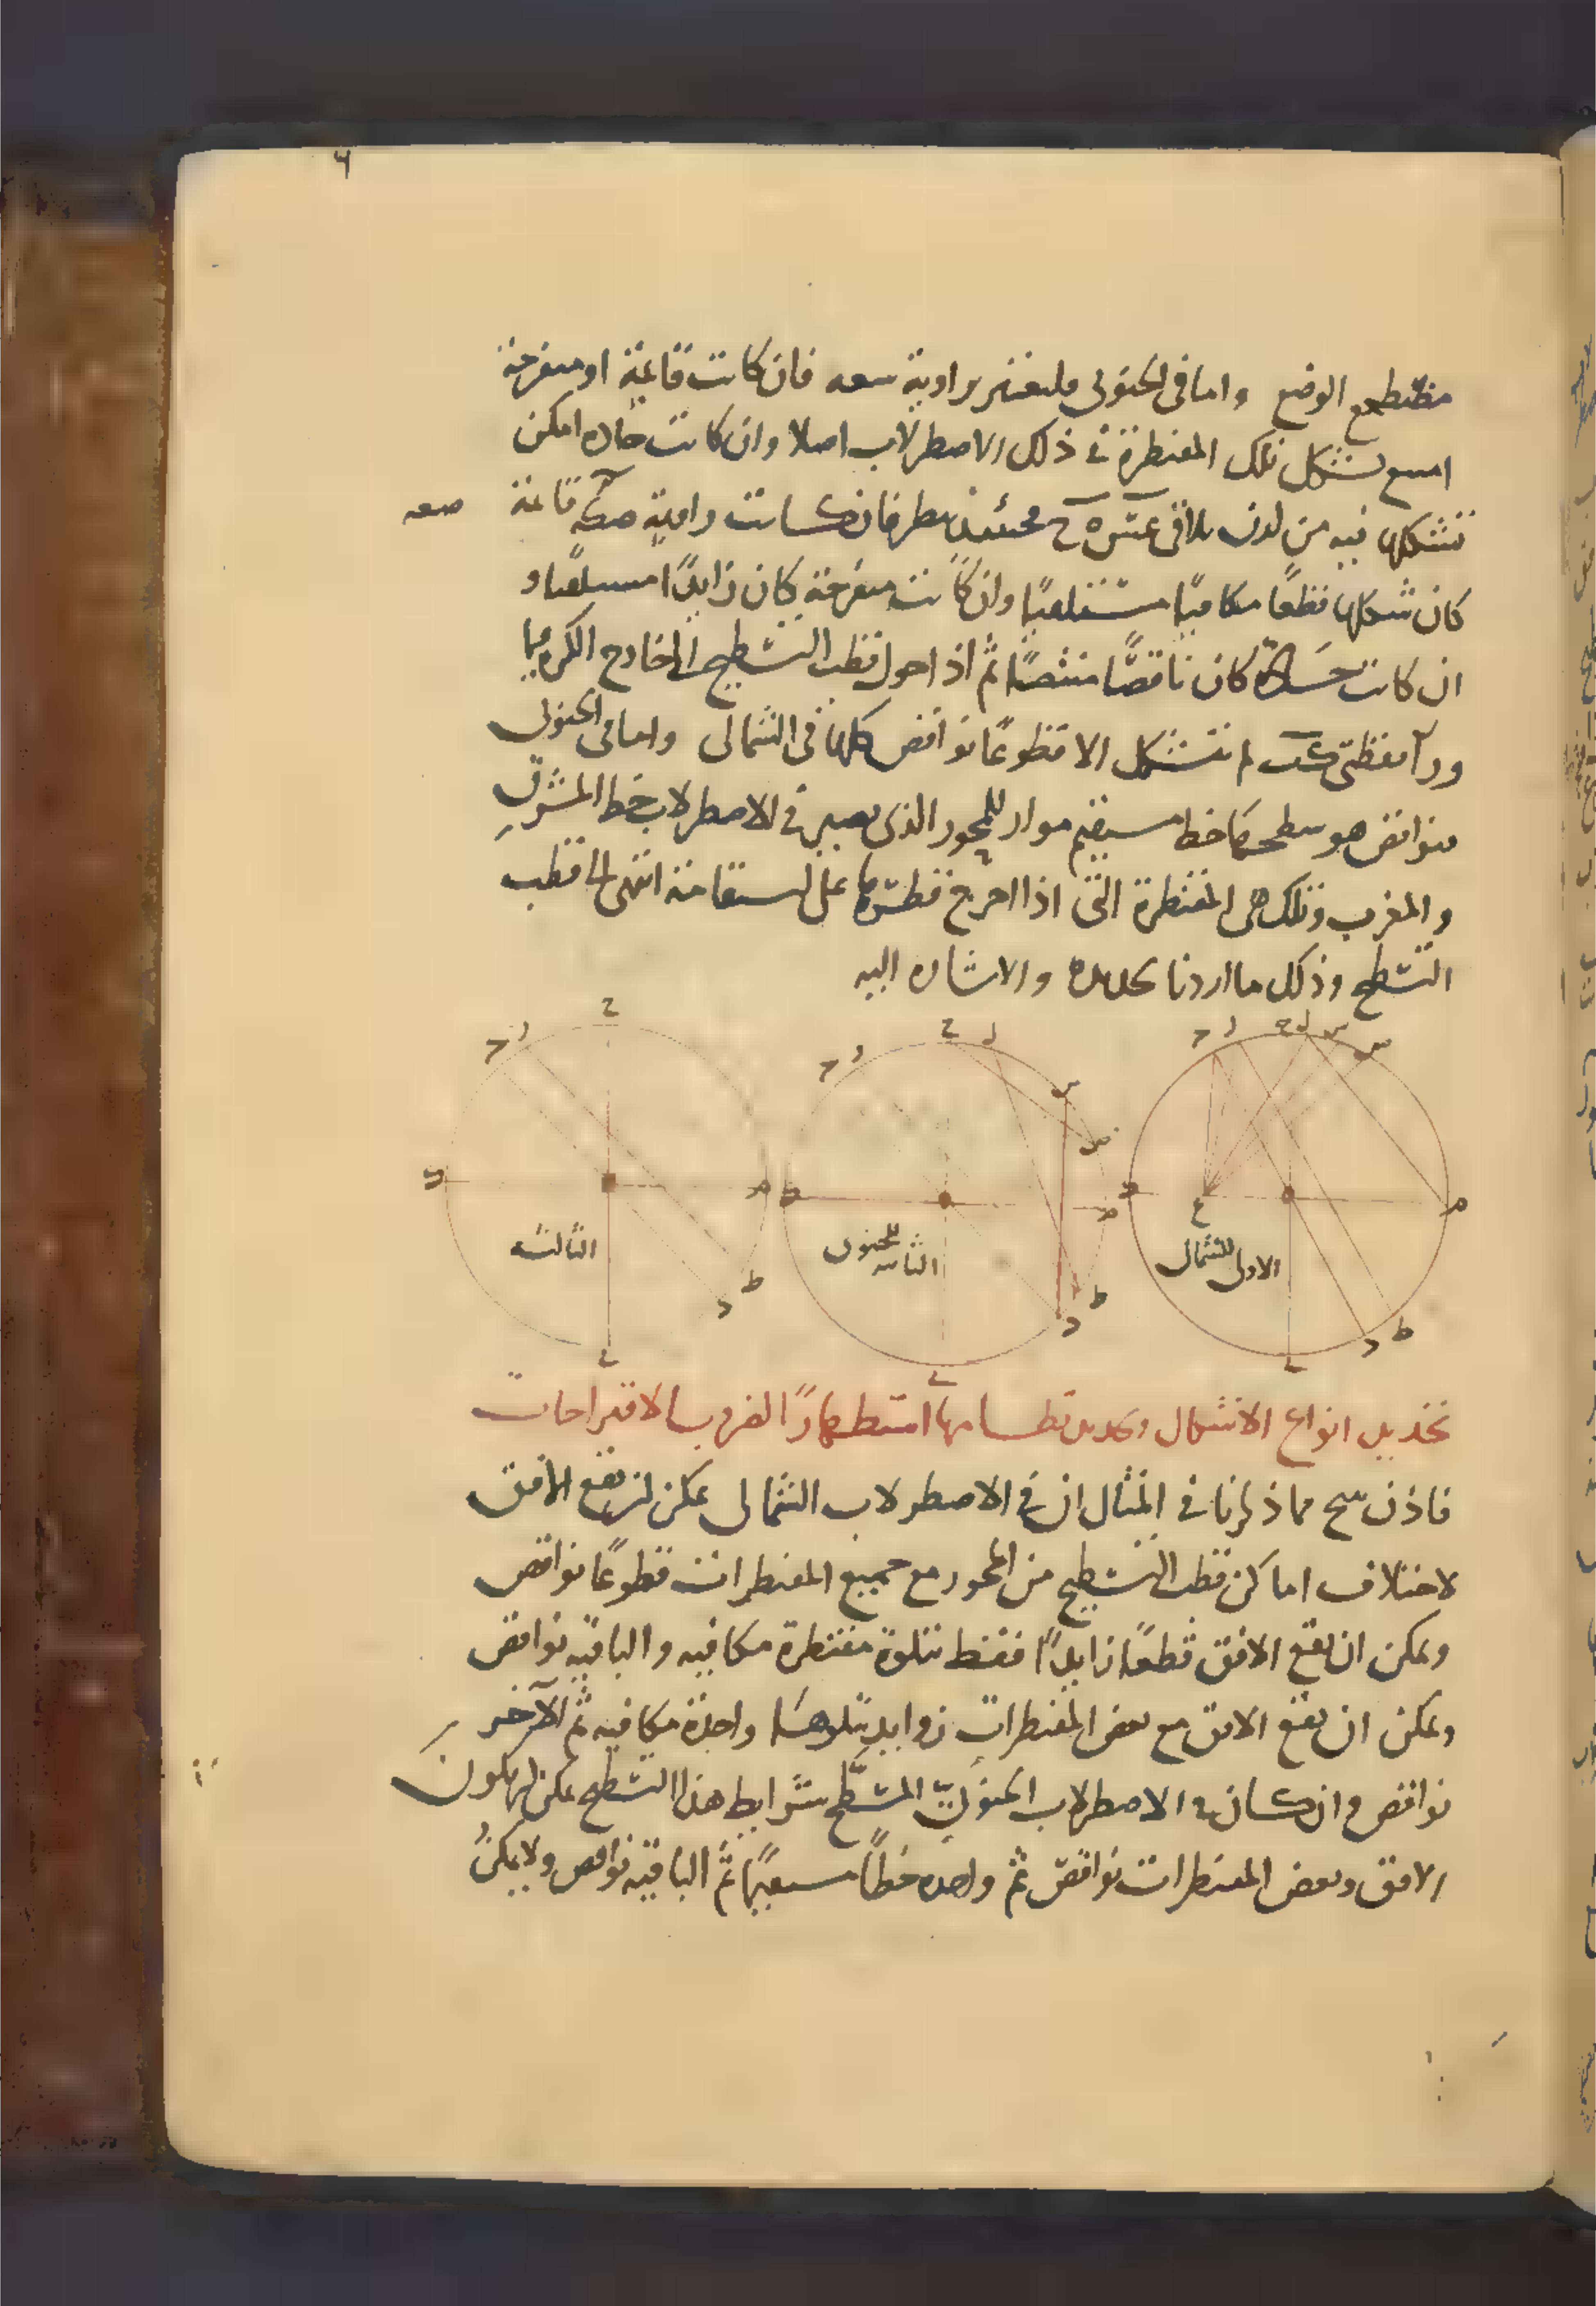 ٦
مضطجع الوضع واما فى الجنوبى فليعتبر براوية سعه فان كانت قايمة او منفرجة
امتنع تشكل تلك المقنطرة فى ذلك الاصطرلاب اصلا وان كانت حاده امكن
تشكلها فيه من لدن فان كانت زاوية قايمة
صعه
كان شكلها قطعًا مكافيًا مستلقيًا وان كانت منفرجة كان زايدًا مستلقيًا و
ان كانت حادّة كان ناقصًا منتصبًا ثم اذا حول قطب التسطيح الى خارج الكره فيما
ورآ نقطتى لم تتشكل الا قطوعًا نواقص كلها فى الشمالى واما فى الجنوبى
فنواقص هو سطحها خط مستقيم مواز للمحور الذى يصير فى الاصطرلاب خط المشرق
والمغرب وتلك هى المقنطرة التى اذا اخرج قطرها على استقامته انتهى الى قطب
التسطيح وذلك ما اردنا تحديده والاشاره اليه
ح ل س د
ه ط ع
الاولى للشمال
ح ل س د
ه ط
الثانيه للجنوب
ح
ه ط د
الثالثه
تحديد انواع الاشكال وتحديد نظامها استظهارًا لضروب الاقتراحات
فاذن مما ذكرنا فى المثال ان فى الاصطرلاب الشمالى يمكن ان يقع الافق
لاختلاف اماكن قطب التسطيح من المحور مع جميع المقنطرات قطوعًا نواقص
ويمكن ان يقع الافق قطعًا زايدًا فقط تتلوه مقنطرة مكافيه والباقيه نواقص
ويمكن ان يقع الافق مع بعض المقنطرات زوايد يتلوها واحدة مكافيه ثم الآخر
نواقص وان كان فى الاصطرلاب الجنوبىّ المسطّح بشرايط هذا التسطيح يمكن ان يكون
الافق وبعض المقنطرات نواقص ثم واحده خطًا مستقيمًا ثم الباقيه نواقص ولا يمكن